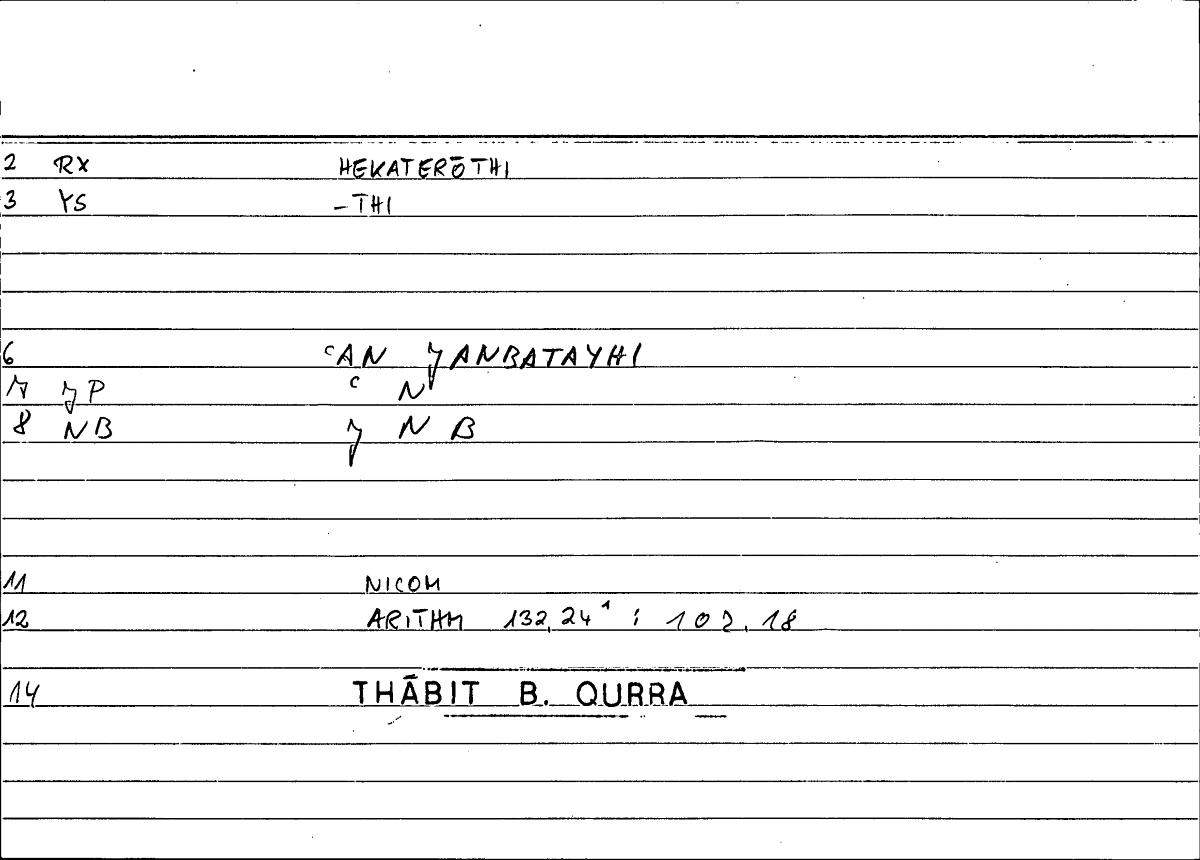 2 RX HEKATERŌTHI
3 YS –THI
6 ᶜAN ȷANBATAYHI
7 ȷP ᶜ N
8 NB ȷ N B
11 NICOM
12 ARITHM 132,24¹ : 102,18
14 THĀBIT B. QURRA